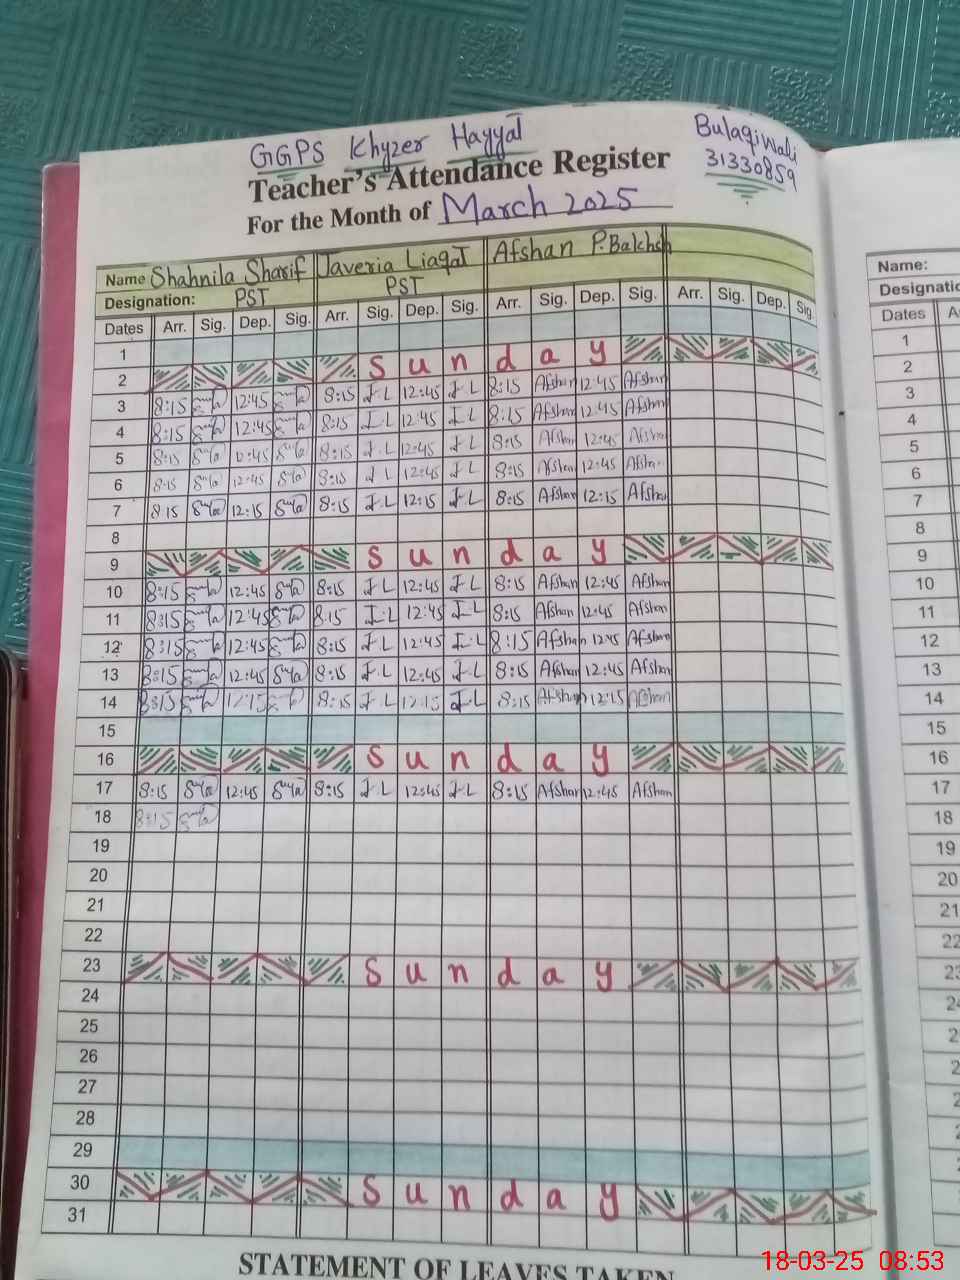 GGPS Khyzer Hayyat
Bulaqiwali
31330859
Teacher's Attendance Register
For the Month of March 2025
Name Shahnila Sharif Javeria Liaqat Afshan P. Bakhsh
Designation: PST PST
Dates Arr. Sig. Dep. Sig. Arr. Sig. Dep. Sig. Arr. Sig. Dep. Sig. Arr. Sig. Dep. Sig.
1
2 Sunday
3 8:15 12:45 8:15 J.L 12:45 J.L 8:15 Afshan 12:45 Afshan
4 8:15 12:45 8:15 J.L 12:45 J.L 8:15 Afshan 12:45 Afshan
5 8:15 12:45 8:15 J.L 12:45 J.L 8:15 Afshan 12:45 Afshan
6 8:15 12:45 8:15 J.L 12:45 J.L 8:15 Afshan 12:45 Afshan
7 8:15 12:15 8:15 J.L 12:15 J.L 8:15 Afshan 12:15 Afshan
8
9 Sunday
10 8:15 12:45 8:15 J.L 12:45 J.L 8:15 Afshan 12:45 Afshan
11 8:15 12:45 8:15 J.L 12:45 J.L 8:15 Afshan 12:45 Afshan
12 8:15 12:45 8:15 J.L 12:45 J.L 8:15 Afshan 12:45 Afshan
13 8:15 12:45 8:15 J.L 12:45 J.L 8:15 Afshan 12:45 Afshan
14 8:15 12:15 8:15 J.L 12:15 J.L 8:15 Afshan 12:15 Afshan
15
16 Sunday
17 8:15 12:45 8:15 J.L 12:45 J.L 8:15 Afshan 12:45 Afshan
18 8:15
19
20
21
22
23 Sunday
24
25
26
27
28
29
30 Sunday
31
STATEMENT OF LEAVES TAKEN
Name:
Designatio
Dates
1
2
3
4
5
6
7
8
9
10
11
12
13
14
15
16
17
18
19
20
21
22
23
18-03-25 08:53